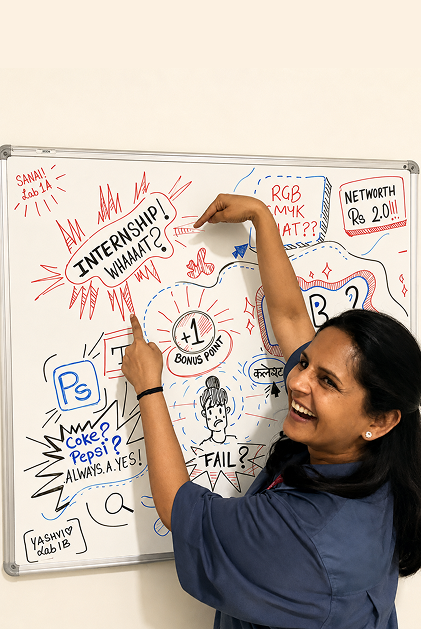 SANAI!
Lab 1A
INTERNSHIP!
WHAAAT?
RGB
MYK
HAT??
NETWORTH
Rs 2.0!!!
B ?
+1
BONUS POINT
T
Ps
कलेश
Coke?
Pepsi?
ALWAYS.A.YES!
FAIL?
YASHVI
Lab 1B